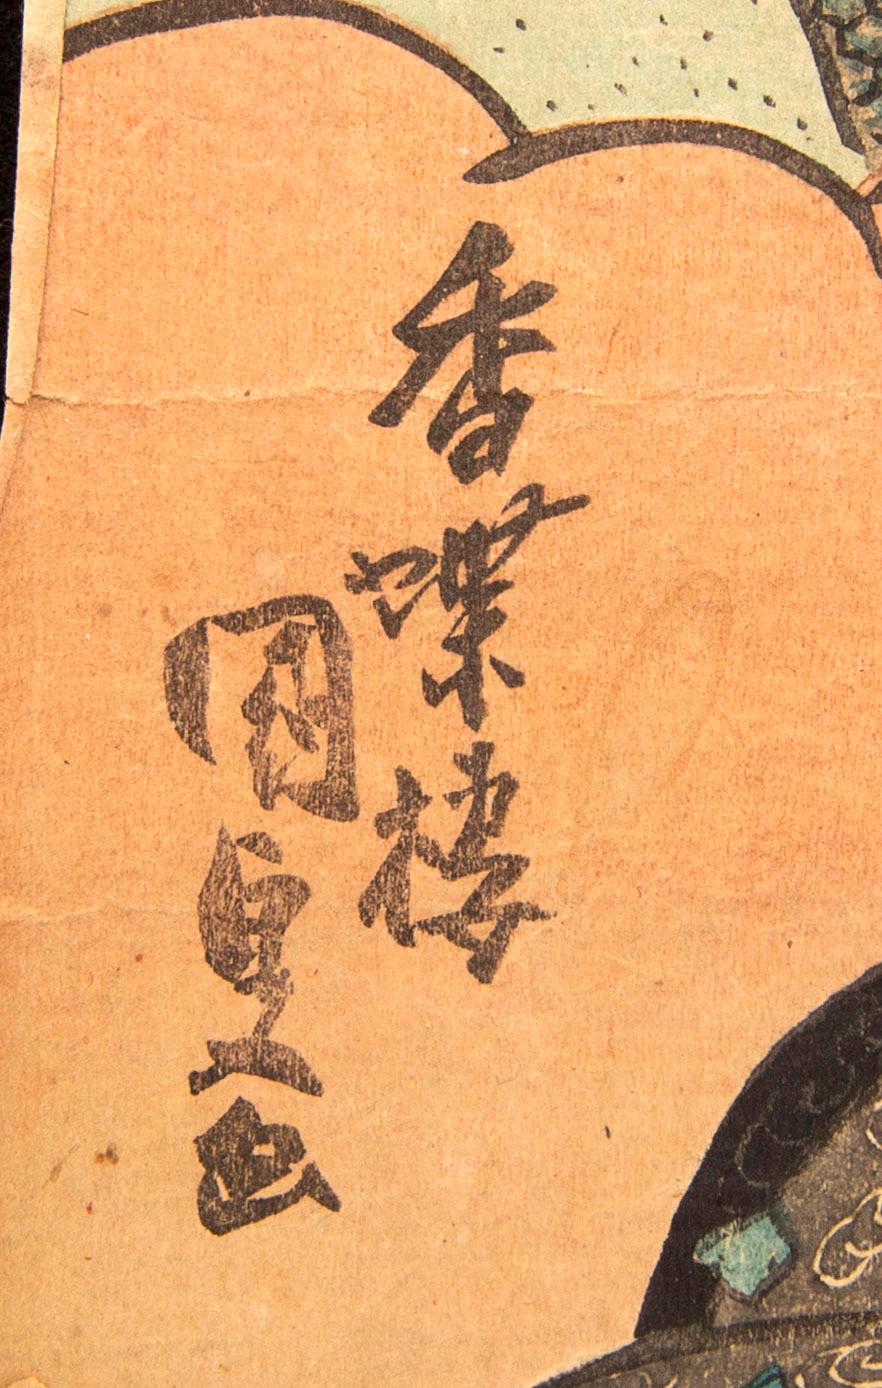 香蝶楼
国貞画